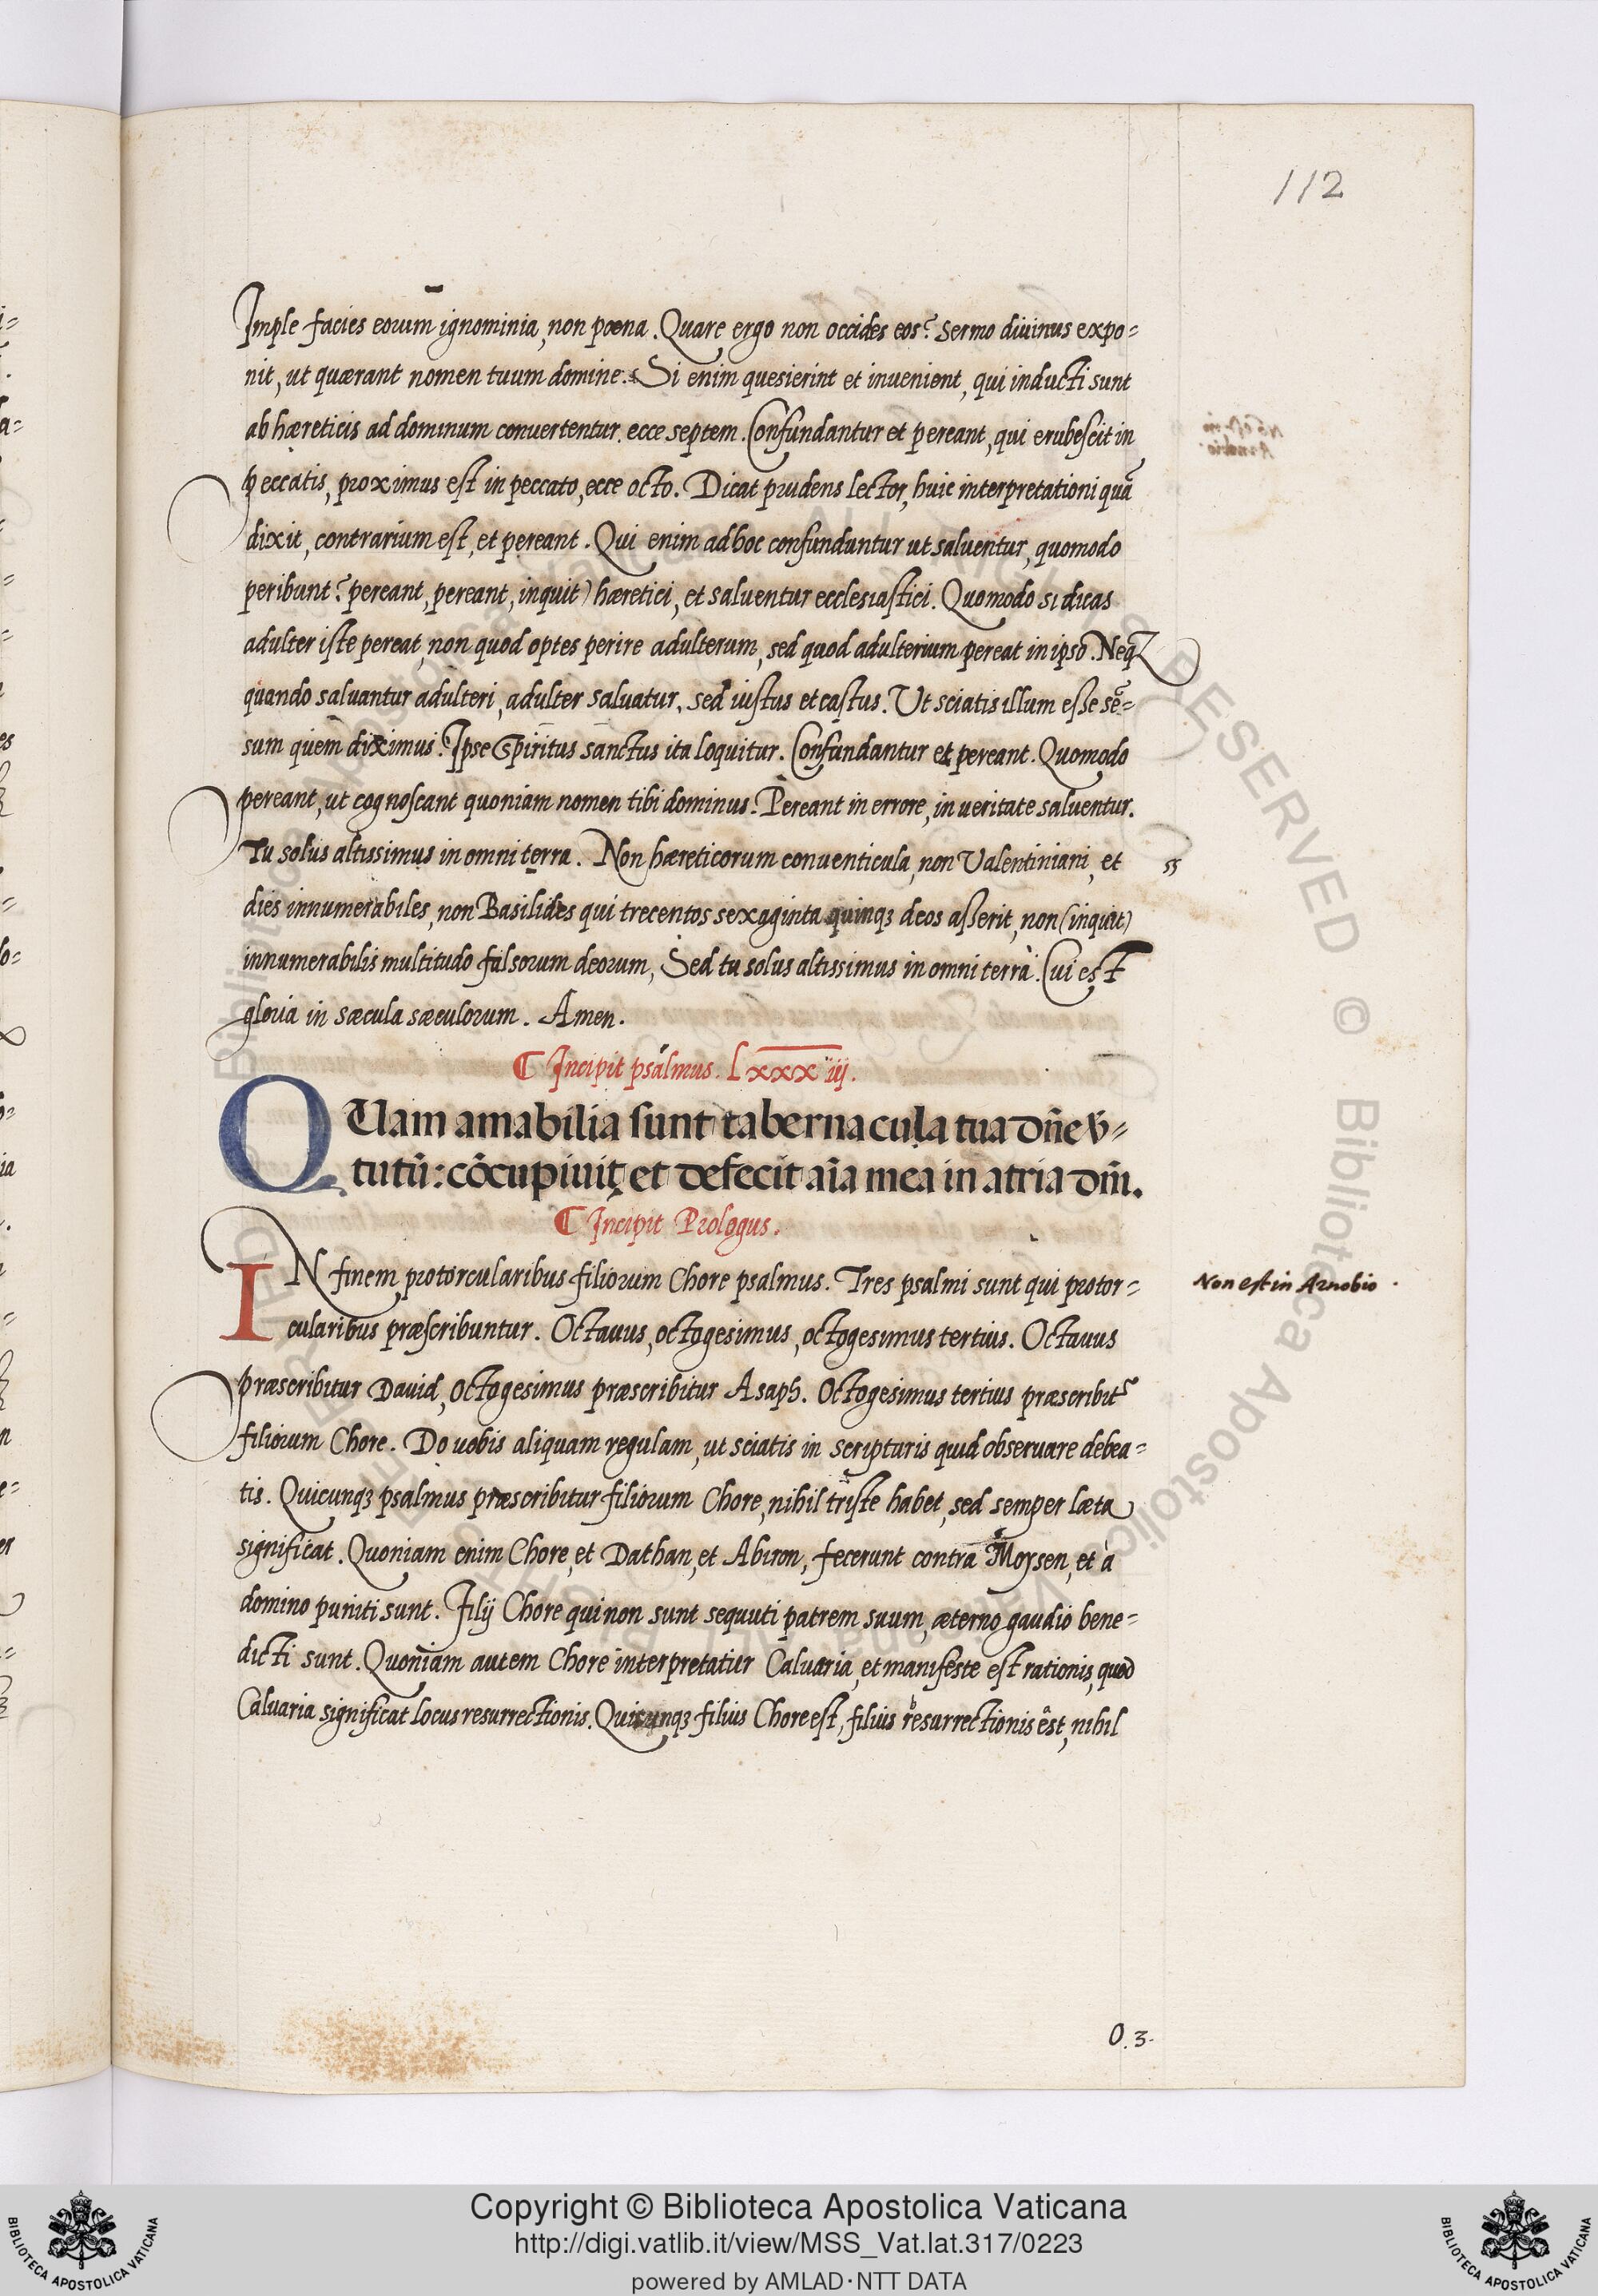 112
Imple facies eorum ignominia, non poena. Quare ergo non occides eos? Sermo divinus expo=
nit, ut quærant nomen tuum domine. Si enim quesierint et invenient, qui inducti sunt
ab hæreticis ad dominum convertentur. ecce septem. Confundantur et pereant, qui erubescit in
peccatis, proximus est in peccato, ecce octo. Dicat prudens lector, huic interpretationi quã
dixit, contrarium est, et pereant. Qui enim ad hoc confunduntur ut salventur, quomodo
peribunt? pereant, pereant, inquit) hæretici, et salventur ecclesiastici. Quomodo si dicas
adulter iste pereat, non quod optes perire adulterum, sed quod adulterium pereat in ipso. Neqꝫ
quando salvantur adulteri, adulter salvatur, sed iustus et castus. Ut sciatis illum esse sẽ=
sum quem diximus? Ipse Spiritus sanctus ita loquitur. Confundantur et pereant. Quomodo
pereant, ut cognoscant quoniam nomen tibi dominus. Pereant in errore, in veritate salventur.
Tu solus altissimus in omni terra. Non hæreticorum conventicula, non Valentiniani, et
dies innumerabiles, non Basilides qui trecentos sexaginta quinqꝫ deos asserit, non (inquit)
innumerabilis multitudo falsorum deorum, Sed tu solus altissimus in omni terra. Cui est
gloria in sæcula sæculorum. Amen.
¶ Incipit psalmus. Lxxxiij.
QUam amabilia sunt tabernacula tua dñe v̄r=
tutũ: cõcupivit et defecit aĩa mea in atria dñi.
¶ Incipit Prologus.
IN finem protorcularibus filiorum Chore psalmus. Tres psalmi sunt qui protor=
Non est in Arnobio.
cularibus præscribuntur. Octavus, octogesimus, octogesimus tertius. Octavus
præscribitur David, Octogesimus præscribitur Asaph. Octogesimus tertius præscribitᷣ
filiorum Chore. Do vobis aliquam regulam, ut sciatis in scripturis quid observare debea=
tis. Quicunqꝫ psalmus præscribitur filiorum Chore, nihil triste habet, sed semper læta
significat. Quoniam enim Chore, et Dathan, et Abiron, fecerunt contra Moysen, et à
domino puniti sunt. Filij Chore qui non sunt sequuti patrem suum, æterno gaudio bene=
dicti sunt. Quoniam autem Chore interpretatur Calvaria, et manifeste est rationis, quod
Calvaria significat locus resurrectionis. Quicunqꝫ filius Chore est, filius resurrectionis est, nihil
O.3.
Copyright © Biblioteca Apostolica Vaticana
http://digi.vatlib.it/view/MSS_Vat.lat.317/0223
powered by AMLAD·NTT DATA
BIBLIOTECA APOSTOLICA VATICANA
BIBLIOTECA APOSTOLICA VATICANA